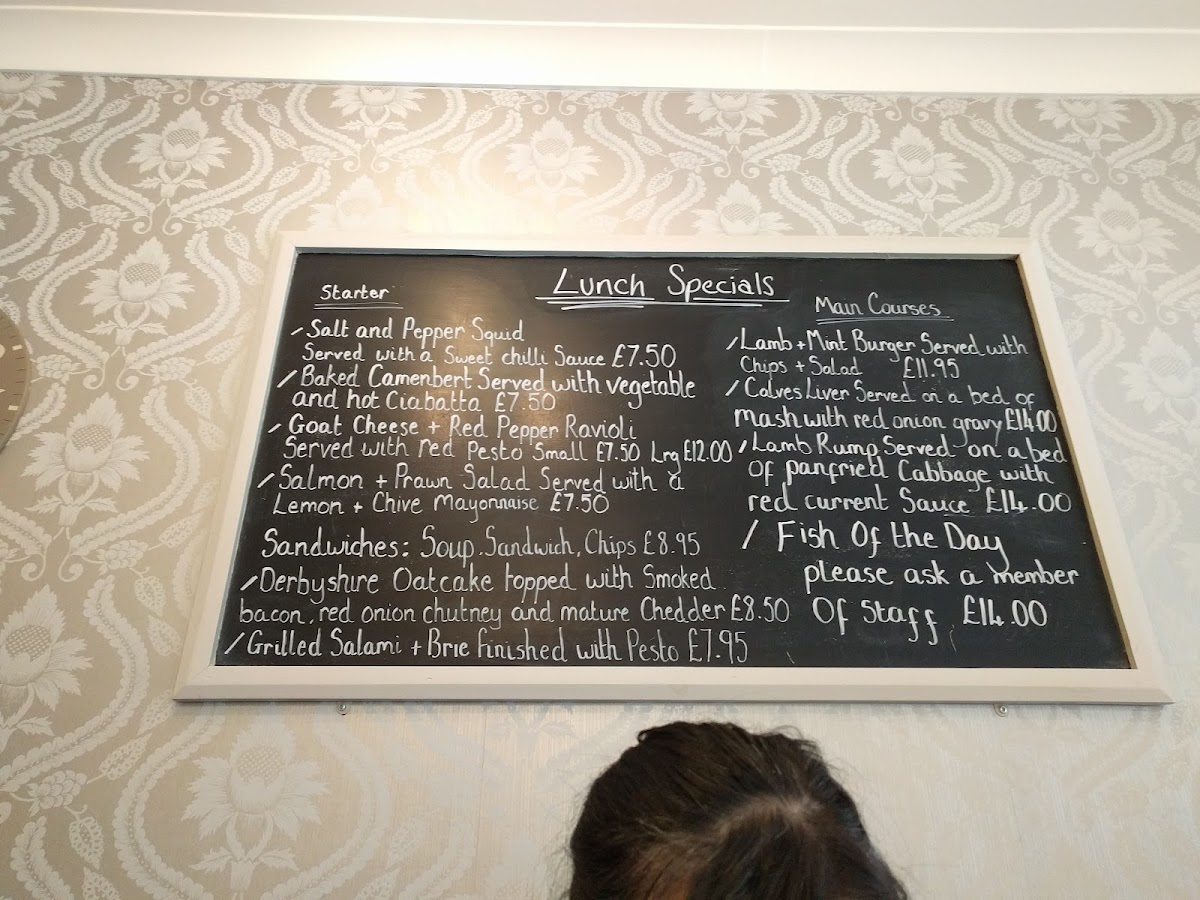 Lunch Specials
Starter
/ Salt and Pepper Squid
Served with a Sweet chilli Sauce £7.50
/ Baked Camenbert Served with vegetable
and hot Ciabatta £7.50
/ Goat Cheese + Red Pepper Ravioli
Served with red Pesto Small £7.50 Lrg £12.00
/ Salmon + Prawn Salad Served with a
Lemon + Chive Mayonnaise £7.50
Sandwiches: Soup, Sandwich, Chips £8.95
/ Derbyshire Oatcake topped with Smoked
bacon, red onion chutney and mature Chedder £8.50
/ Grilled Salami + Brie finished with Pesto £7.95
Main Courses
/ Lamb + Mint Burger Served with
Chips + Salad £11.95
/ Calves Liver Served on a bed of
mash with red onion gravy £14.00
/ Lamb Rump Served on a bed
of panfried Cabbage with
red current Sauce £14.00
/ Fish Of the Day
please ask a member
Of Staff £14.00